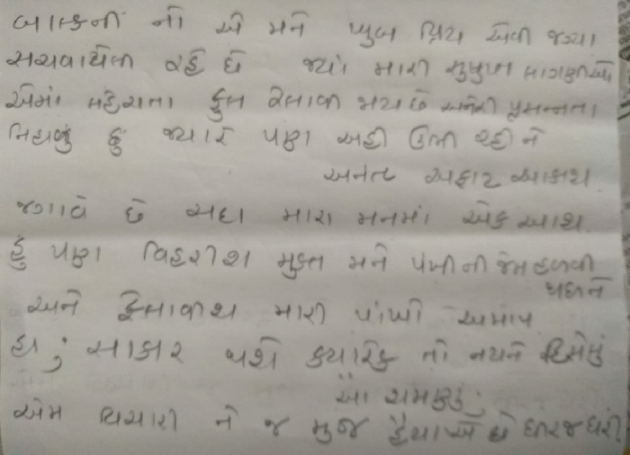 બાલ્કની નો એ મને ખુબ પ્રિય એવી જગ્યા
સચવાયેલી રહે છે જ્યાં મારી સુષુપ્ત લાગણીઓ
એમાં મહેરાતા ફુલ રેલાવી જાય છે અનેરી પ્રસન્નતા
નિહાળું છું જ્યારે પણ અહી ઉભી રહીને
અનંત અફાટ આકાશ
જગાવે છે સદા મારા મનમાં એક આશ
હું પણ વિહરીશ મુક્ત મને પંખીની જેમ હળવી
થઇને
અને ફેલાવીશ મારી પાંખો અમાપ
હા, સાકાર થશે ક્યારેક તો નયને
આ શમણું;
એમ વિચારી ને જ મુજ હૈયાએ છે ધીરજ ધરી